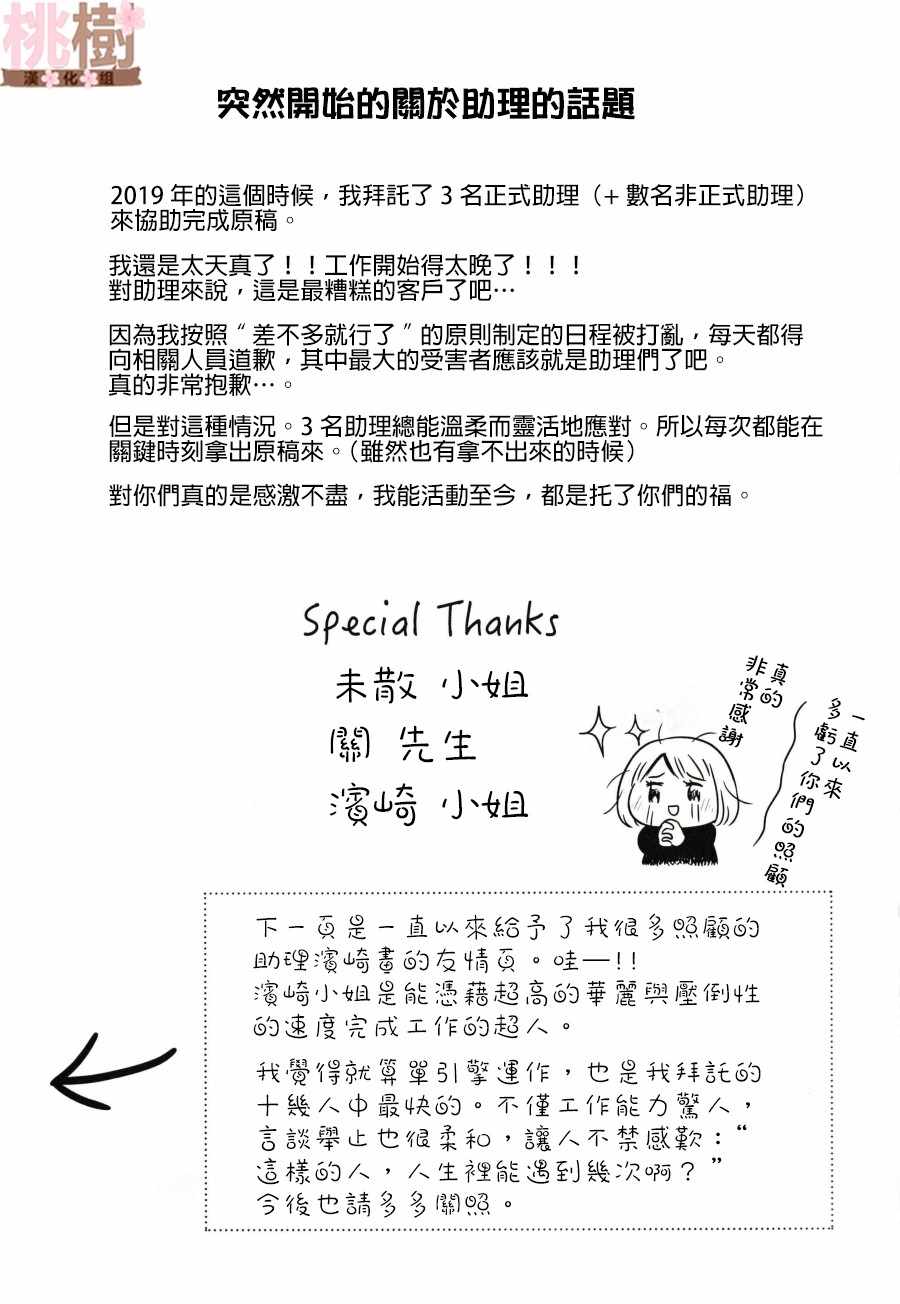 桃樹
漢化组
突然開始的關於助理的話題
2019 年的這個時候，我拜託了 3 名正式助理（+ 數名非正式助理）
來協助完成原稿。
我還是太天真了！！工作開始得太晚了！！！
對助理來說，這是最糟糕的客戶了吧…
因為我按照“ 差不多就行了 ”的原則制定的日程被打亂，每天都得
向相關人員道歉，其中最大的受害者應該就是助理們了吧。
真的非常抱歉…。
但是對這種情況。3 名助理總能溫柔而靈活地應對。所以每次都能在
關鍵時刻拿出原稿來。（雖然也有拿不出來的時候）
對你們真的是感激不盡，我能活動至今，都是托了你們的福。
Special Thanks
未散 小姐
關 先生
濱崎 小姐
一直以來
多虧了你們的照顧
真的
非常感謝
下一頁是一直以來給予了我很多照顧的
助理濱崎畫的友情頁。哇—!!
濱崎小姐是能憑藉超高的華麗與壓倒性
的速度完成工作的超人。
我覺得就算單引擎運作，也是我拜託的
十幾人中最快的。不僅工作能力驚人，
言談舉止也很柔和，讓人不禁感歎：“
這樣的人，人生裡能遇到幾次啊？”
今後也請多多關照。